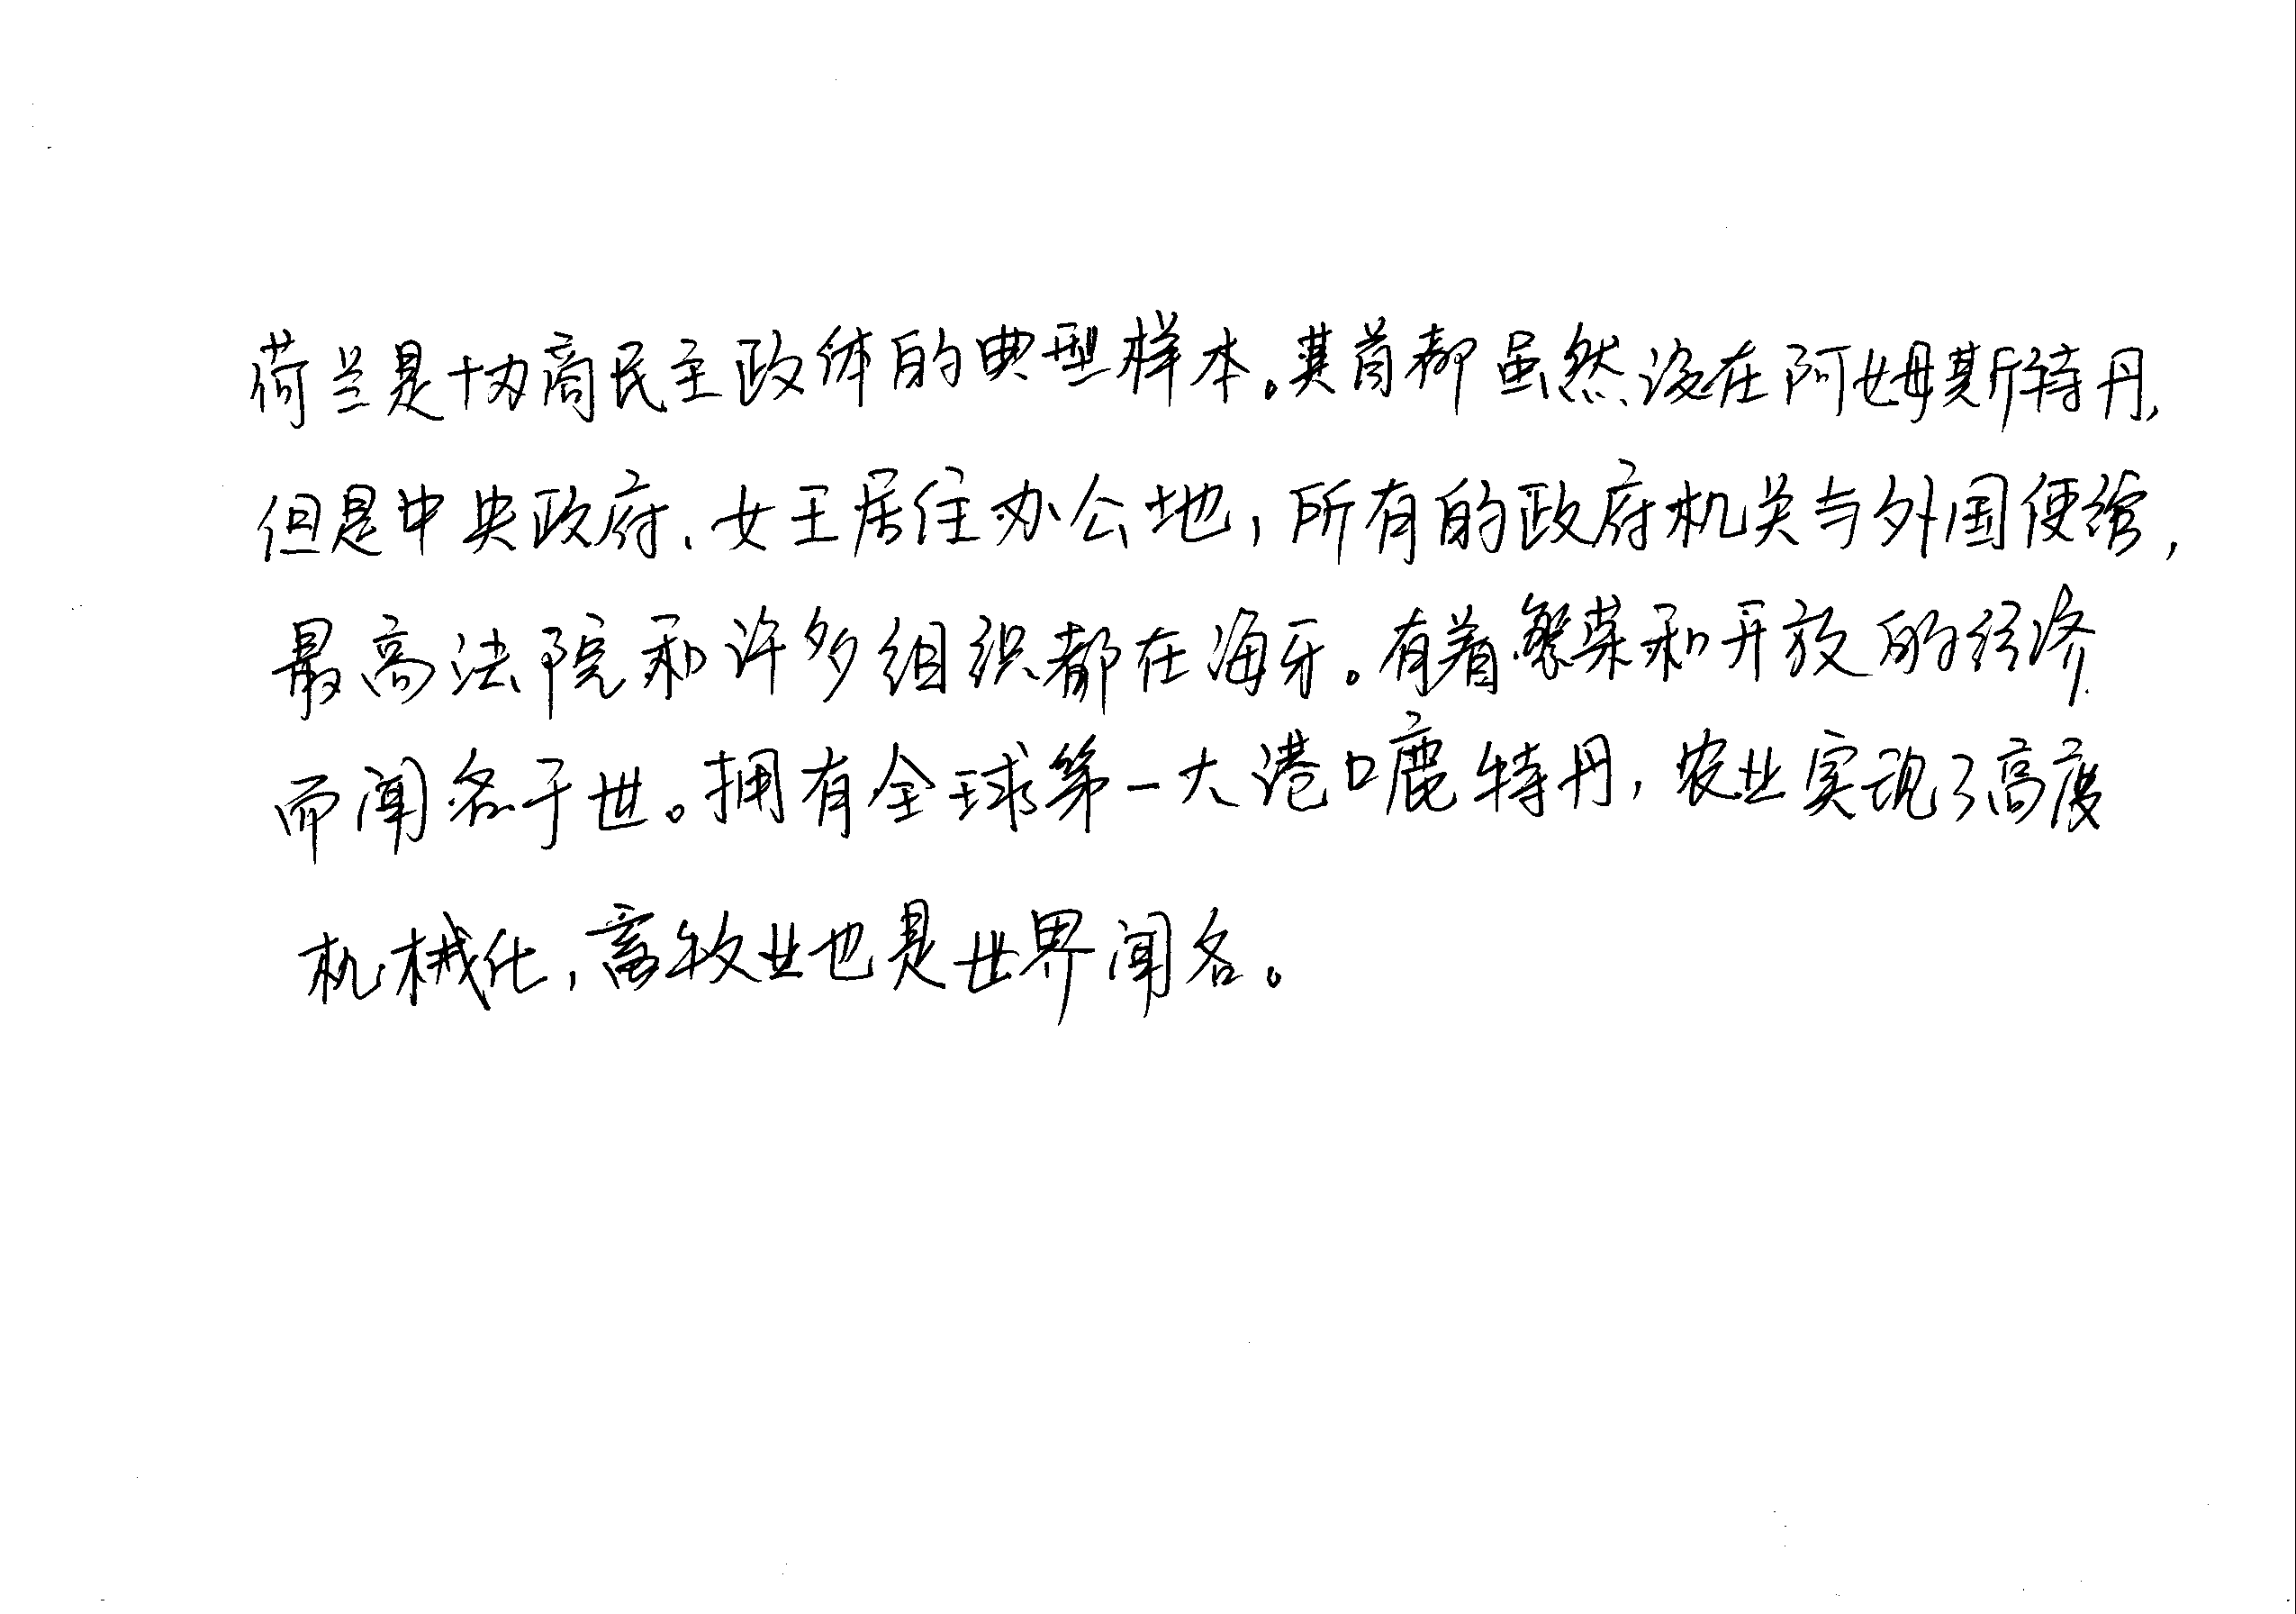 荷兰是协商民主政体的典型样本。其首都虽然设在阿姆斯特丹,
但是中央政府、女王居住办公地,所有的政府机关与外国使馆,
最高法院和许多组织都在海牙。有着繁荣和开放的经济
而闻名于世。拥有全球第一大港口鹿特丹,农业实现了高度
机械化,畜牧业也是世界闻名。